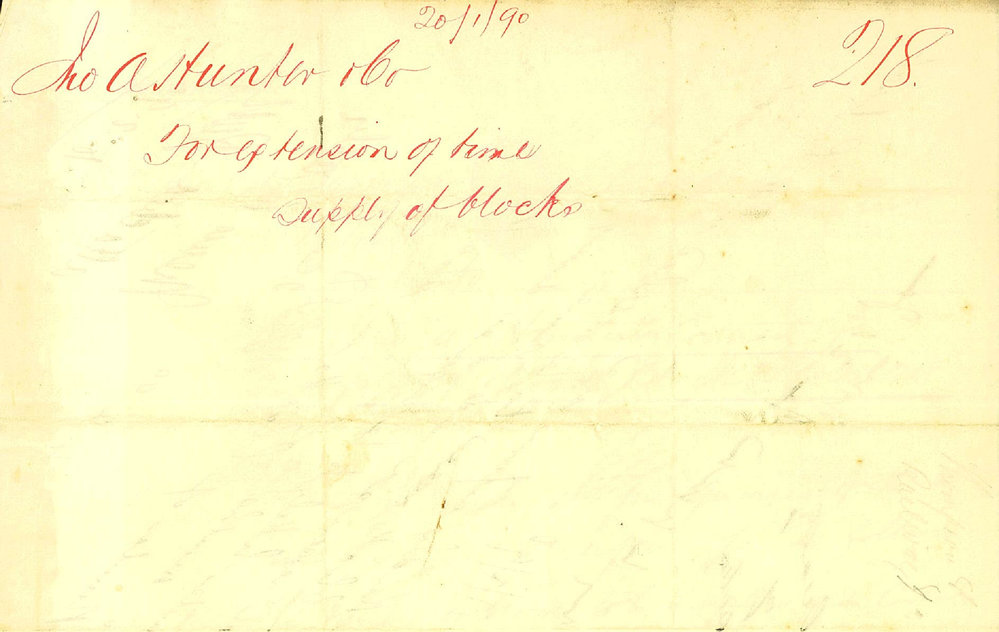 20/1/90
Jno A Hunter & Co
218.
For extension of time
supply of blocks